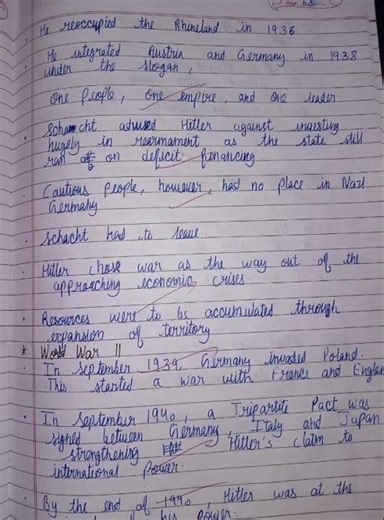 He reoccupied the Rhineland in 1936
He integrated Austria and Germany in 1938
under the slogan,
One People, one empire, and one leader
Schacht advised Hitler against investing
hugely in rearmament as the state still
ran on deficit financing
Cautious people, however, had no place in Nazi
Germany
Schacht had to leave
Hitler chose war as the way out of the
approaching economic crises
Resources were to be accumulated through
expansion of territory
* World War II
In September 1939, Germany invaded Poland.
This started a war with France and England
In September 1940, a Tripartite Pact was
signed between Germany, Italy and Japan
strengthening Hitler's claim to
international power.
By the end of 1940, Hitler was at the
his power.